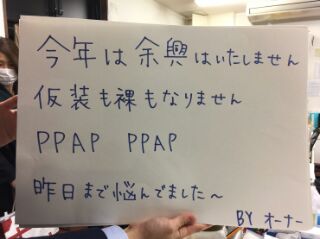 今年は余興はいたしません
仮装も裸もなりません
PPAP PPAP
昨日まで悩んでました〜
BY オーナー